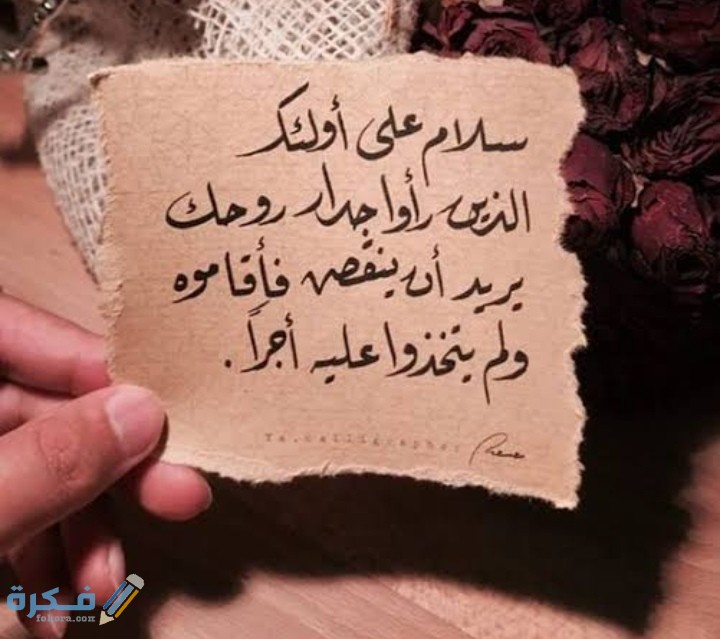 سلام على أولئك
الذين رأوا جدار روحك
يريد أن ينقض فأقاموه
ولم يتخذوا عليه أجراً.
فكرة
fekera.com